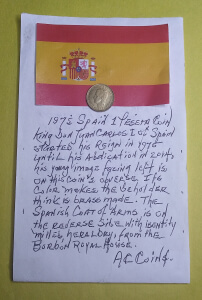 1975 SPAIN 1 PESETA COIN
KING DON JUAN CARLOS I OF SPAIN
STARTED HIS REIGN IN 1975
UNTIL HIS ABDICATION IN 2014,
HIS YOUNG IMAGE FACING LEFT IS
ON THIS COIN'S OBVERSE. ITS
COLOR MAKES THE BEHOLDER
THINK IS BRASS MADE. THE
SPANISH COAT OF ARMS IS ON
THE REVERSE SIDE WITH IDENTITY
HERALDRY, FROM THE
BORBÓN ROYAL HOUSE.
AC COINS.